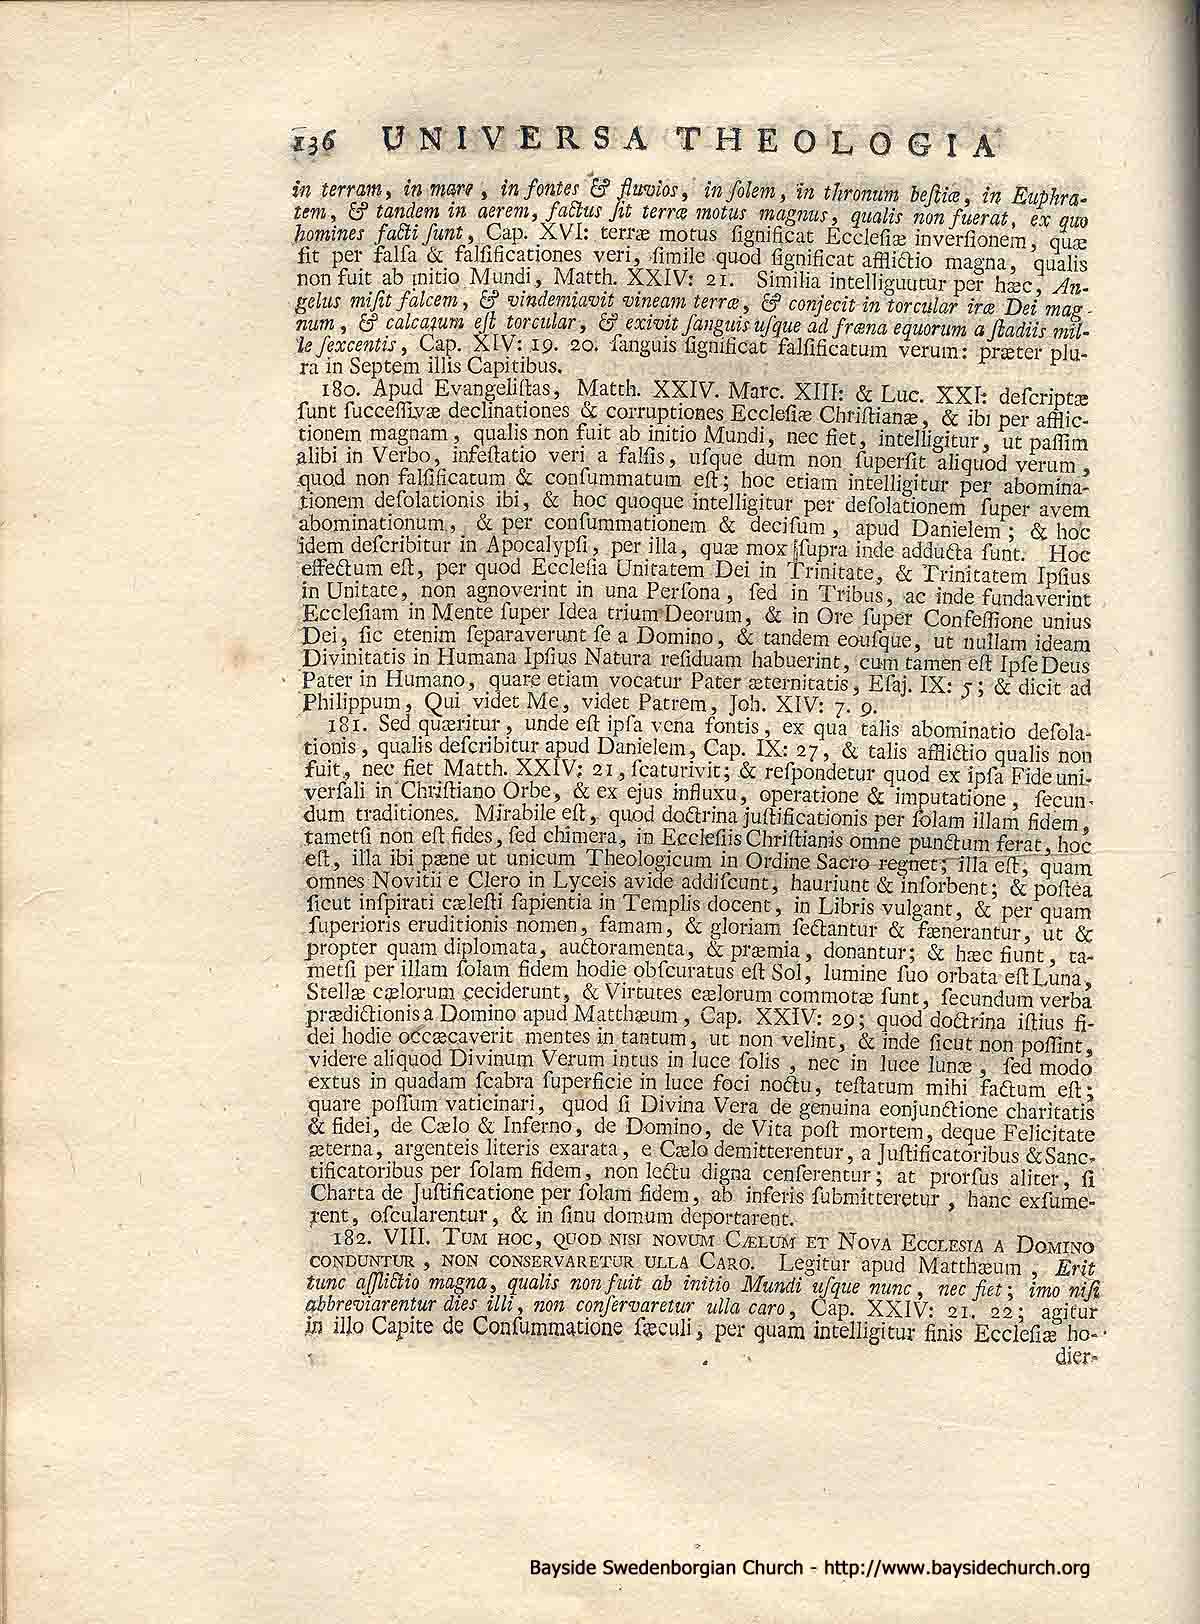 136 UNIVERSA THEOLOGIA
in terram, in mare, in fontes & fluvios, in ſolem, in thronum beſtiæ, in Euphra-
tem, & tandem in aerem, factus ſit terræ motus magnus, qualis non fuerat, ex quo
homines facti ſunt, Cap. XVI: terræ motus ſignificat Eccleſiæ inverſionem, quæ
fit per falſa & falſificationes veri, ſimile quod ſignificat afflictio magna, qualis
non fuit ab initio Mundi, Matth. XXIV: 21. Similia intelliguutur per hæc, An-
gelus miſit falcem, & vindemiavit vineam terræ, & conjecit in torcular iræ Dei mag-
num, & calcatum eſt torcular, & exivit ſanguis uſque ad fræna equorum a ſtadiis mil-
le ſexcentis, Cap. XIV: 19. 20. ſanguis ſignificat falſificatum verum: præter plu-
ra in Septem illis Capitibus.
180. Apud Evangeliſtas, Matth. XXIV. Marc. XIII: & Luc. XXI: deſcriptæ
ſunt ſucceſſivæ declinationes & corruptiones Eccleſiæ Chriſtianæ, & ibi per afflic-
tionem magnam, qualis non fuit ab initio Mundi, nec fiet, intelligitur, ut paſſim
alibi in Verbo, infeſtatio veri a falſis, uſque dum non ſuperſit aliquod verum,
quod non falſificatum & conſummatum eſt; hoc etiam intelligitur per abomina-
tionem deſolationis ibi, & hoc quoque intelligitur per deſolationem ſuper avem
abominationum, & per conſummationem & deciſum, apud Danielem; & hoc
idem deſcribitur in Apocalypſi, per illa, quæ mox ſupra inde adducta ſunt. Hoc
effectum eſt, per quod Eccleſia Unitatem Dei in Trinitate, & Trinitatem Ipſius
in Unitate, non agnoverint in una Perſona, ſed in Tribus, ac inde fundaverint
Eccleſiam in Mente ſuper Idea trium Deorum, & in Ore ſuper Confeſſione unius
Dei, ſic etenim ſeparaverunt ſe a Domino, & tandem eouſque, ut nullam ideam
Divinitatis in Humana Ipſius Natura reſiduam habuerint, cum tamen eſt Ipſe Deus
Pater in Humano, quare etiam vocatur Pater æternitatis, Eſaj. IX: 5; & dicit ad
Philippum, Qui videt Me, videt Patrem, Joh. XIV: 7. 9.
181. Sed quæritur, unde eſt ipſa vena fontis, ex qua talis abominatio deſola-
tionis, qualis deſcribitur apud Danielem, Cap. IX: 27, & talis afflictio qualis non
fuit, nec fiet Matth. XXIV: 21, ſcaturivit; & reſpondetur quod ex ipſa Fide uni-
verſali in Chriſtiano Orbe, & ex ejus influxu, operatione & imputatione, ſecun-
dum traditiones. Mirabile eſt, quod doctrina juſtificationis per ſolam illam fidem,
tametſi non eſt fides, ſed chimera, in Eccleſiis Chriſtianis omne punctum ferat, hoc
eſt, illa ibi pæne ut unicum Theologicum in Ordine Sacro regnet; illa eſt, quam
omnes Novitii e Clero in Lyceis avide addiſcunt, hauriunt & inſorbent; & poſtea
ſicut inſpirati cæleſti ſapientia in Templis docent, in Libris vulgant, & per quam
ſuperioris eruditionis nomen, famam, & gloriam ſectantur & fænerantur, ut &
propter quam diplomata, auctoramenta, & præmia, donantur; & hæc fiunt, ta-
metſi per illam ſolam fidem hodie obſcuratus eſt Sol, lumine ſuo orbata eſt Luna,
Stellæ cælorum ceciderunt, & Virtutes eælorum commotæ ſunt, ſecundum verba
prædictionis a Domino apud Matthæum, Cap. XXIV: 29; quod doctrina iſtius fi-
dei hodie occæcaverit mentes in tantum, ut non velint, & inde ſicut non poſſint,
videre aliquod Divinum Verum intus in luce ſolis, nec in luce lunæ, ſed modo
extus in quadam ſcabra ſuperficie in luce foci noctu, teſtatum mihi factum eſt;
quare poſſum vaticinari, quod ſi Divina Vera de genuina eonjunctione charitatis
& fidei, de Cælo & Inferno, de Domino, de Vita poſt mortem, deque Felicitate
æterna, argenteis literis exarata, e Cælo demitterentur, a Juſtificatoribus & Sanc-
tificatoribus per ſolam fidem, non lectu digna cenſerentur; at prorſus aliter, ſi
Charta de Juſtificatione per ſolam fidem, ab inferis ſubmitteretur, hanc exſume-
rent, oſcularentur, & in ſinu domum deportarent.
182. VIII. TUM HOC, QUOD NISI NOVUM CÆLUM ET NOVA ECCLESIA A DOMINO
CONDUNTUR, NON CONSERVARETUR ULLA CARO. Legitur apud Matthæum, Erit
tunc afflictio magna, qualis non fuit ab initio Mundi uſque nunc, nec fiet; imo niſi
abbreviarentur dies illi, non conſervaretur ulla caro, Cap. XXIV: 21. 22; agitur
in illo Capite de Conſummatione ſæculi, per quam intelligitur finis Eccleſiæ ho-
dier-
Bayside Swedenborgian Church - http://www.baysidechurch.org